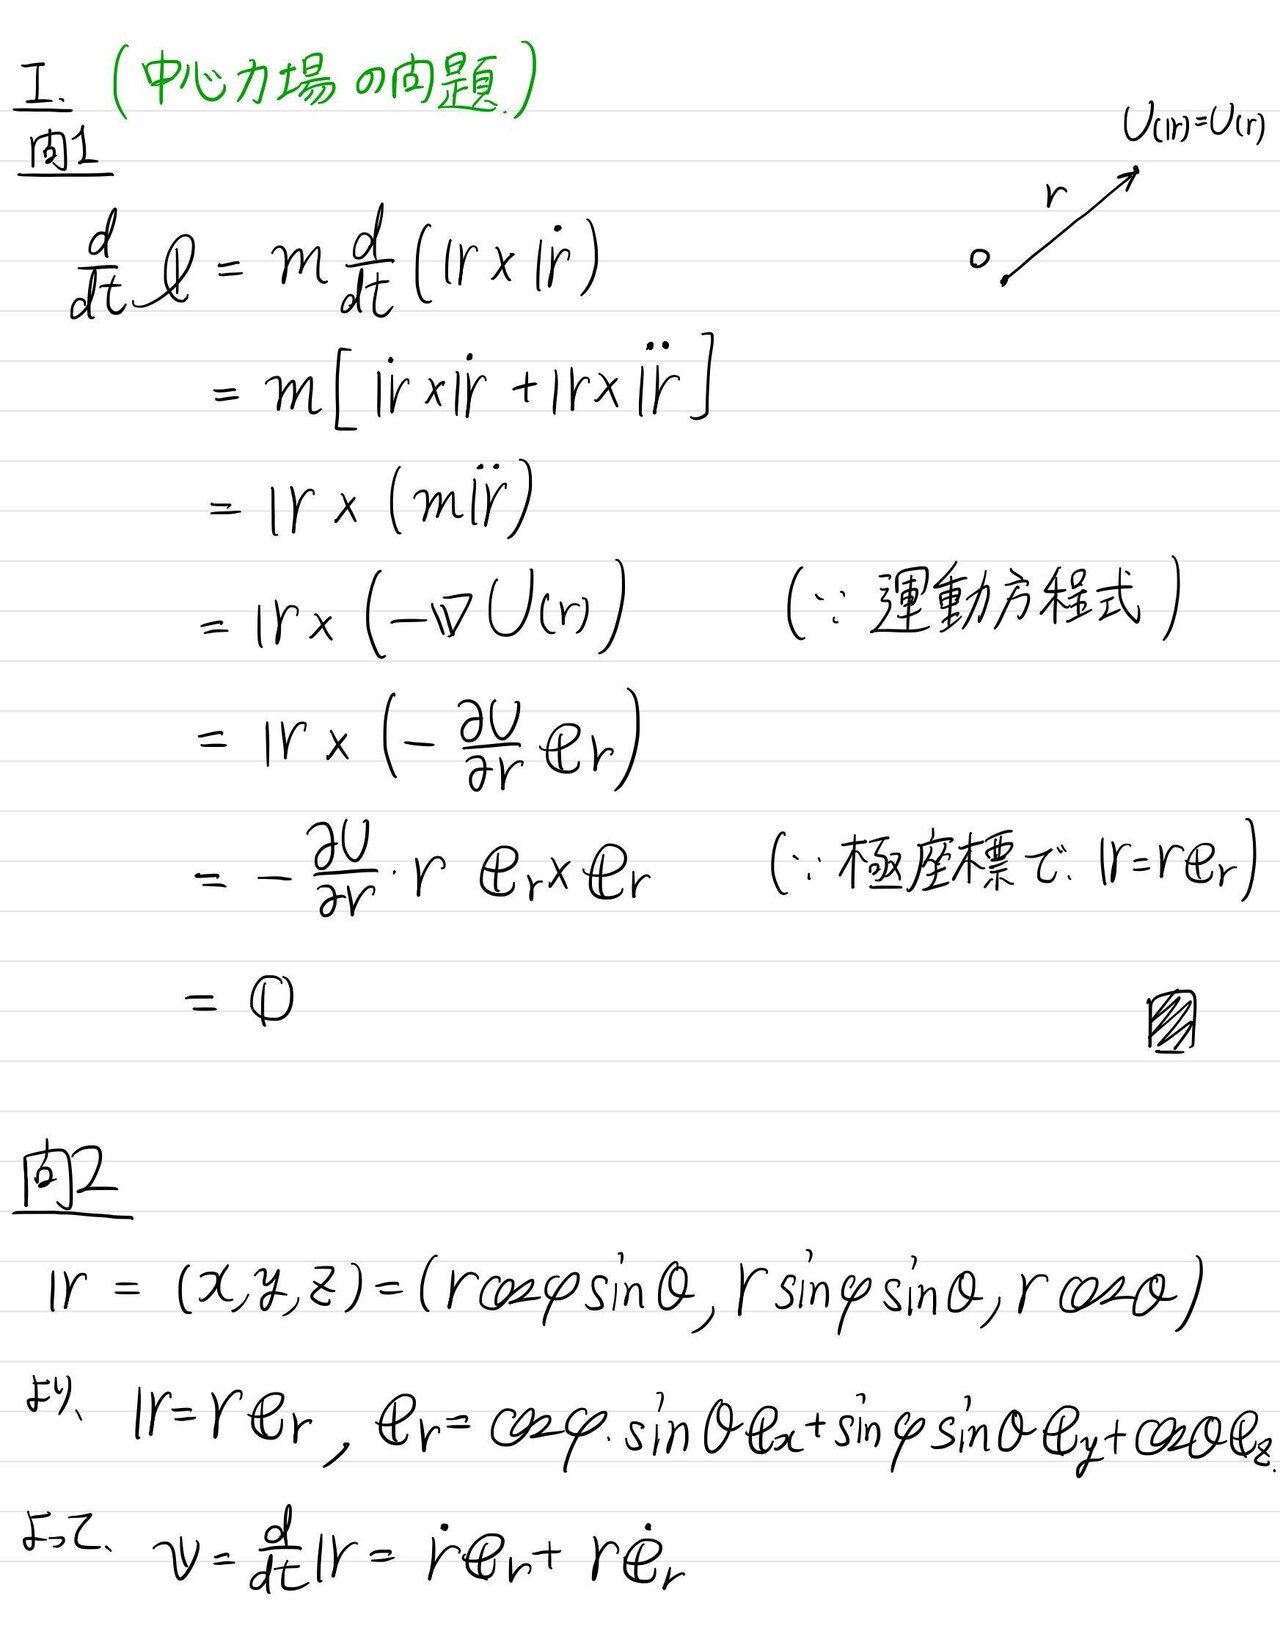 I. (中心力場の問題.)
問1
U(𝕣)=U(r)
r
O
d/dt 𝓵 = m d/dt (𝕣 × 𝕣̇)
= m[ 𝕣̇ × 𝕣̇ + 𝕣 × 𝕣̈ ]
= 𝕣 × (m𝕣̈)
= 𝕣 × (-∇U(r)) (∵ 運動方程式)
= 𝕣 × (- ∂U/∂r 𝕖r)
= - ∂U/∂r · r 𝕖r × 𝕖r (∵ 極座標で、𝕣=r𝕖r)
= 𝟘
問2
𝕣 = (x,y,z) = (r cosφ sinθ, r sinφ sinθ, r cosθ)
より、 𝕣 = r𝕖r , 𝕖r = cosφ·sinθ𝕖x + sinφ sinθ𝕖y + cosθ𝕖z.
よって、 𝕧 = d/dt 𝕣 = ṙ𝕖r + r𝕖̇r